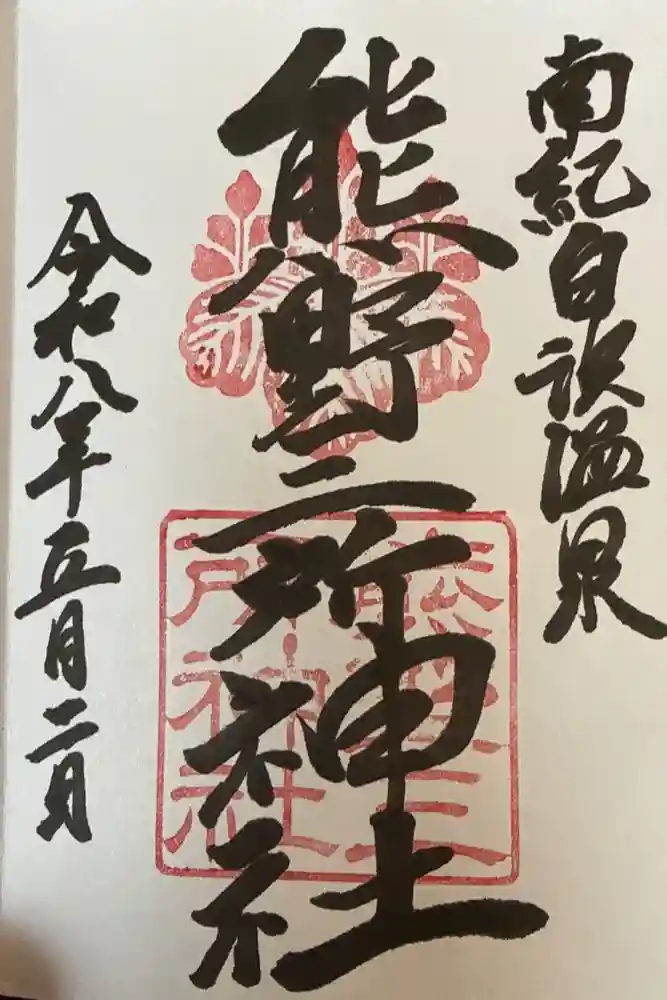 南紀白浜温泉
熊野三所神社
熊野三
所神社
令和八年五月二日